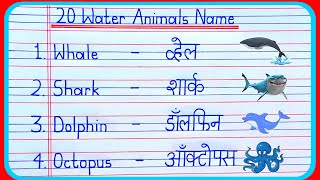 20 Water Animals Name
1. Whale - व्हेल
2. Shark - शार्क
3. Dolphin - डॉलफिन
4. Octopus - ऑक्टोपस